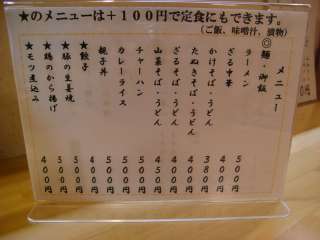 ★のメニューは＋１００円で定食にもできます。
（ご飯、味噌汁、漬物）
メニュー
◎麺・御飯
ラーメン ５００円
ざる中華 ４００円
かけそば・うどん ３８０円
たぬきそば・うどん ４００円
ざるそば・うどん ４００円
山菜そば・うどん ４５０円
チャーハン ５００円
カレーライス ５００円
親子丼 ５００円
★餃子 ４００円
★豚の生姜焼 ５００円
★鶏のから揚げ ５００円
★モツ煮込み ４００円